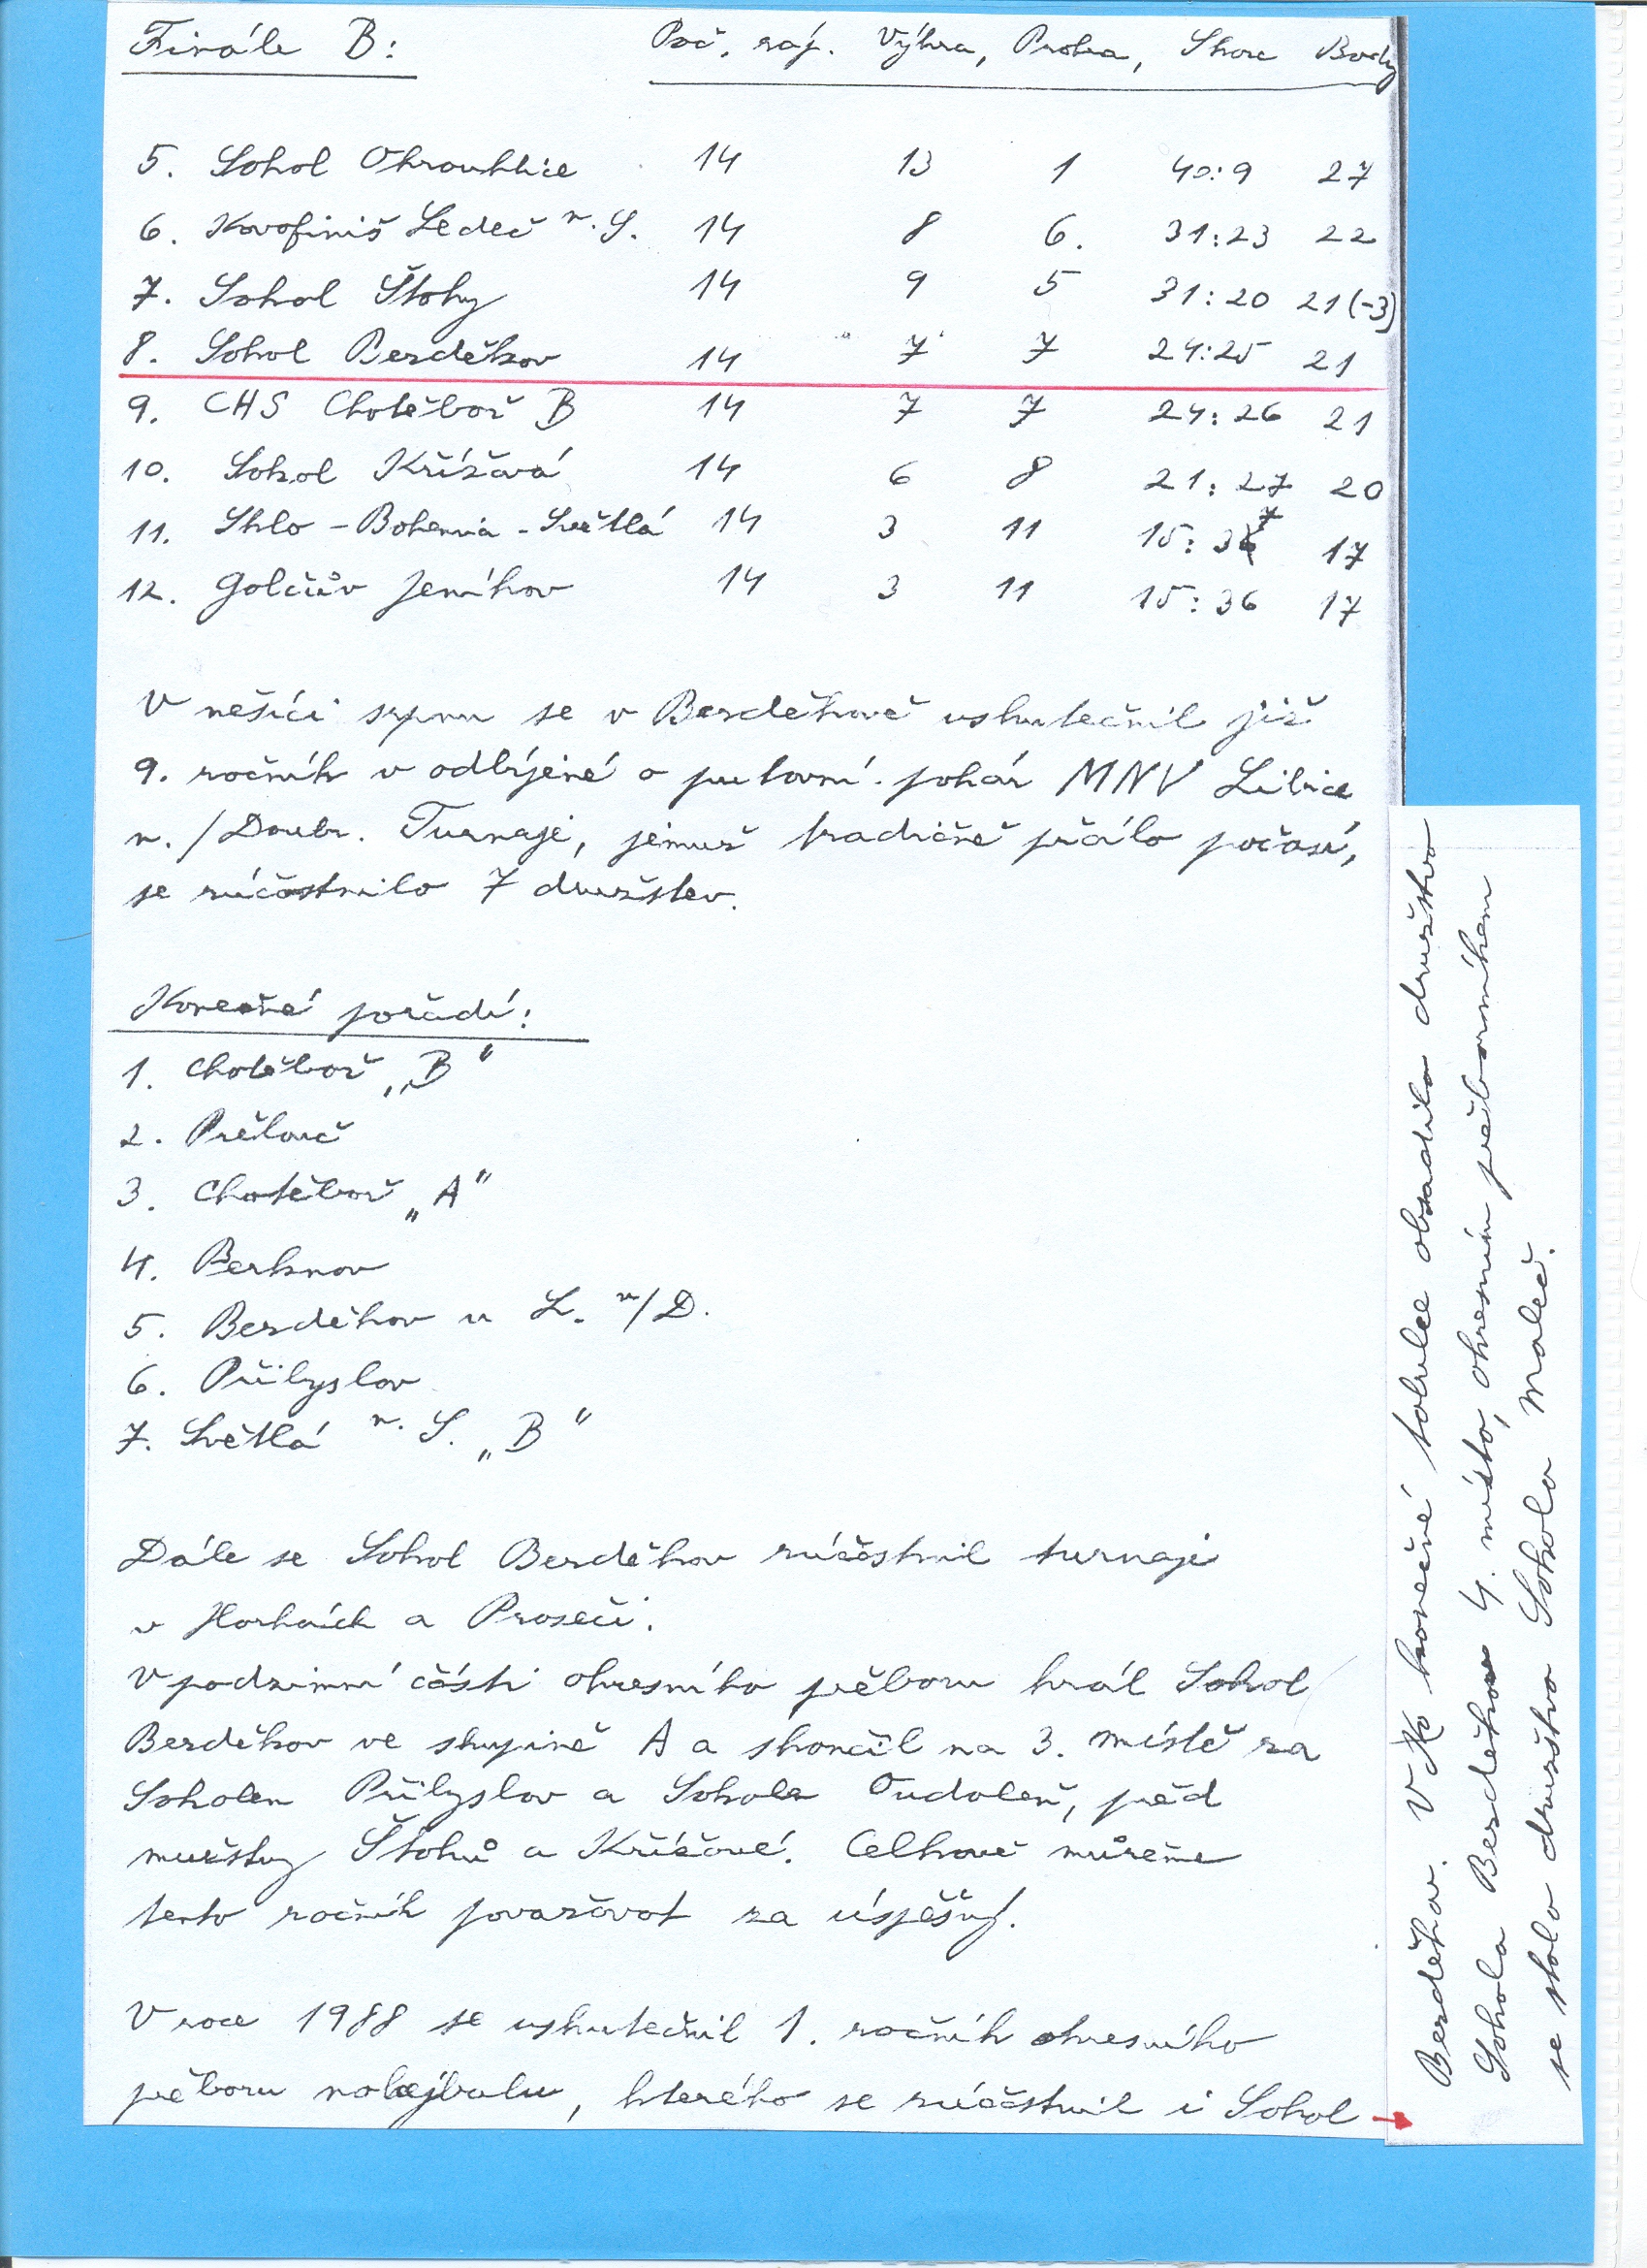 Finále B: Poč. záp. Výhra, Prohra, Skore Body
5. Sokol Okrouhlice 14 13 1 40:9 27
6. Kovofiniš Ledeč n.S. 14 8 6. 31:23 22
7. Sokol Štoky 14 9 5 31:20 21(-3)
8. Sokol Bezděkov 14 7 7 24:25 21
9. CHS Chotěboř B 14 7 7 24:26 21
10. Sokol Křížová 14 6 8 21:27 20
11. Sklo - Bohemia - Světlá 14 3 11 15:37 17
12. Golčův Jeníkov 14 3 11 15:36 17
V měsíci srpnu se v Bezděkově uskutečnil již
9. ročník v odbíjené o putovní pohár MNV Libice
n./Doubr. Turnaji, jemuž tradičně přálo počasí,
se zúčastnilo 7 družstev.
Konečné pořadí:
1. Chotěboř „B“
2. Přelouč
3. Chotěboř „A“
4. Berknov
5. Bezděkov u L. n/D.
6. Přibyslav
7. Světlá n. S. „B“
Dále se Sokol Bezděkov zúčastnil turnaji
v Horkách a Proseči.
V podzimní části okresního přeboru hrál Sokol
Bezděkov ve skupině A a skončil na 3. místě za
Sokolem Přibyslav a Sokolem Oudoleň, před
mužstvy Štoků a Křížové. Celkově můžeme
tento ročník považovat za úspěšný.
V roce 1988 se uskutečnil 1. ročník okresního
přeboru nohejbalu, kterého se zúčastnil i Sokol
Bezděkov. V konečné tabulce obsadilo družstvo
Sokola Bezděkov 4. místo, okresním přeborníkem
se stalo družstvo Sokola Maleč.